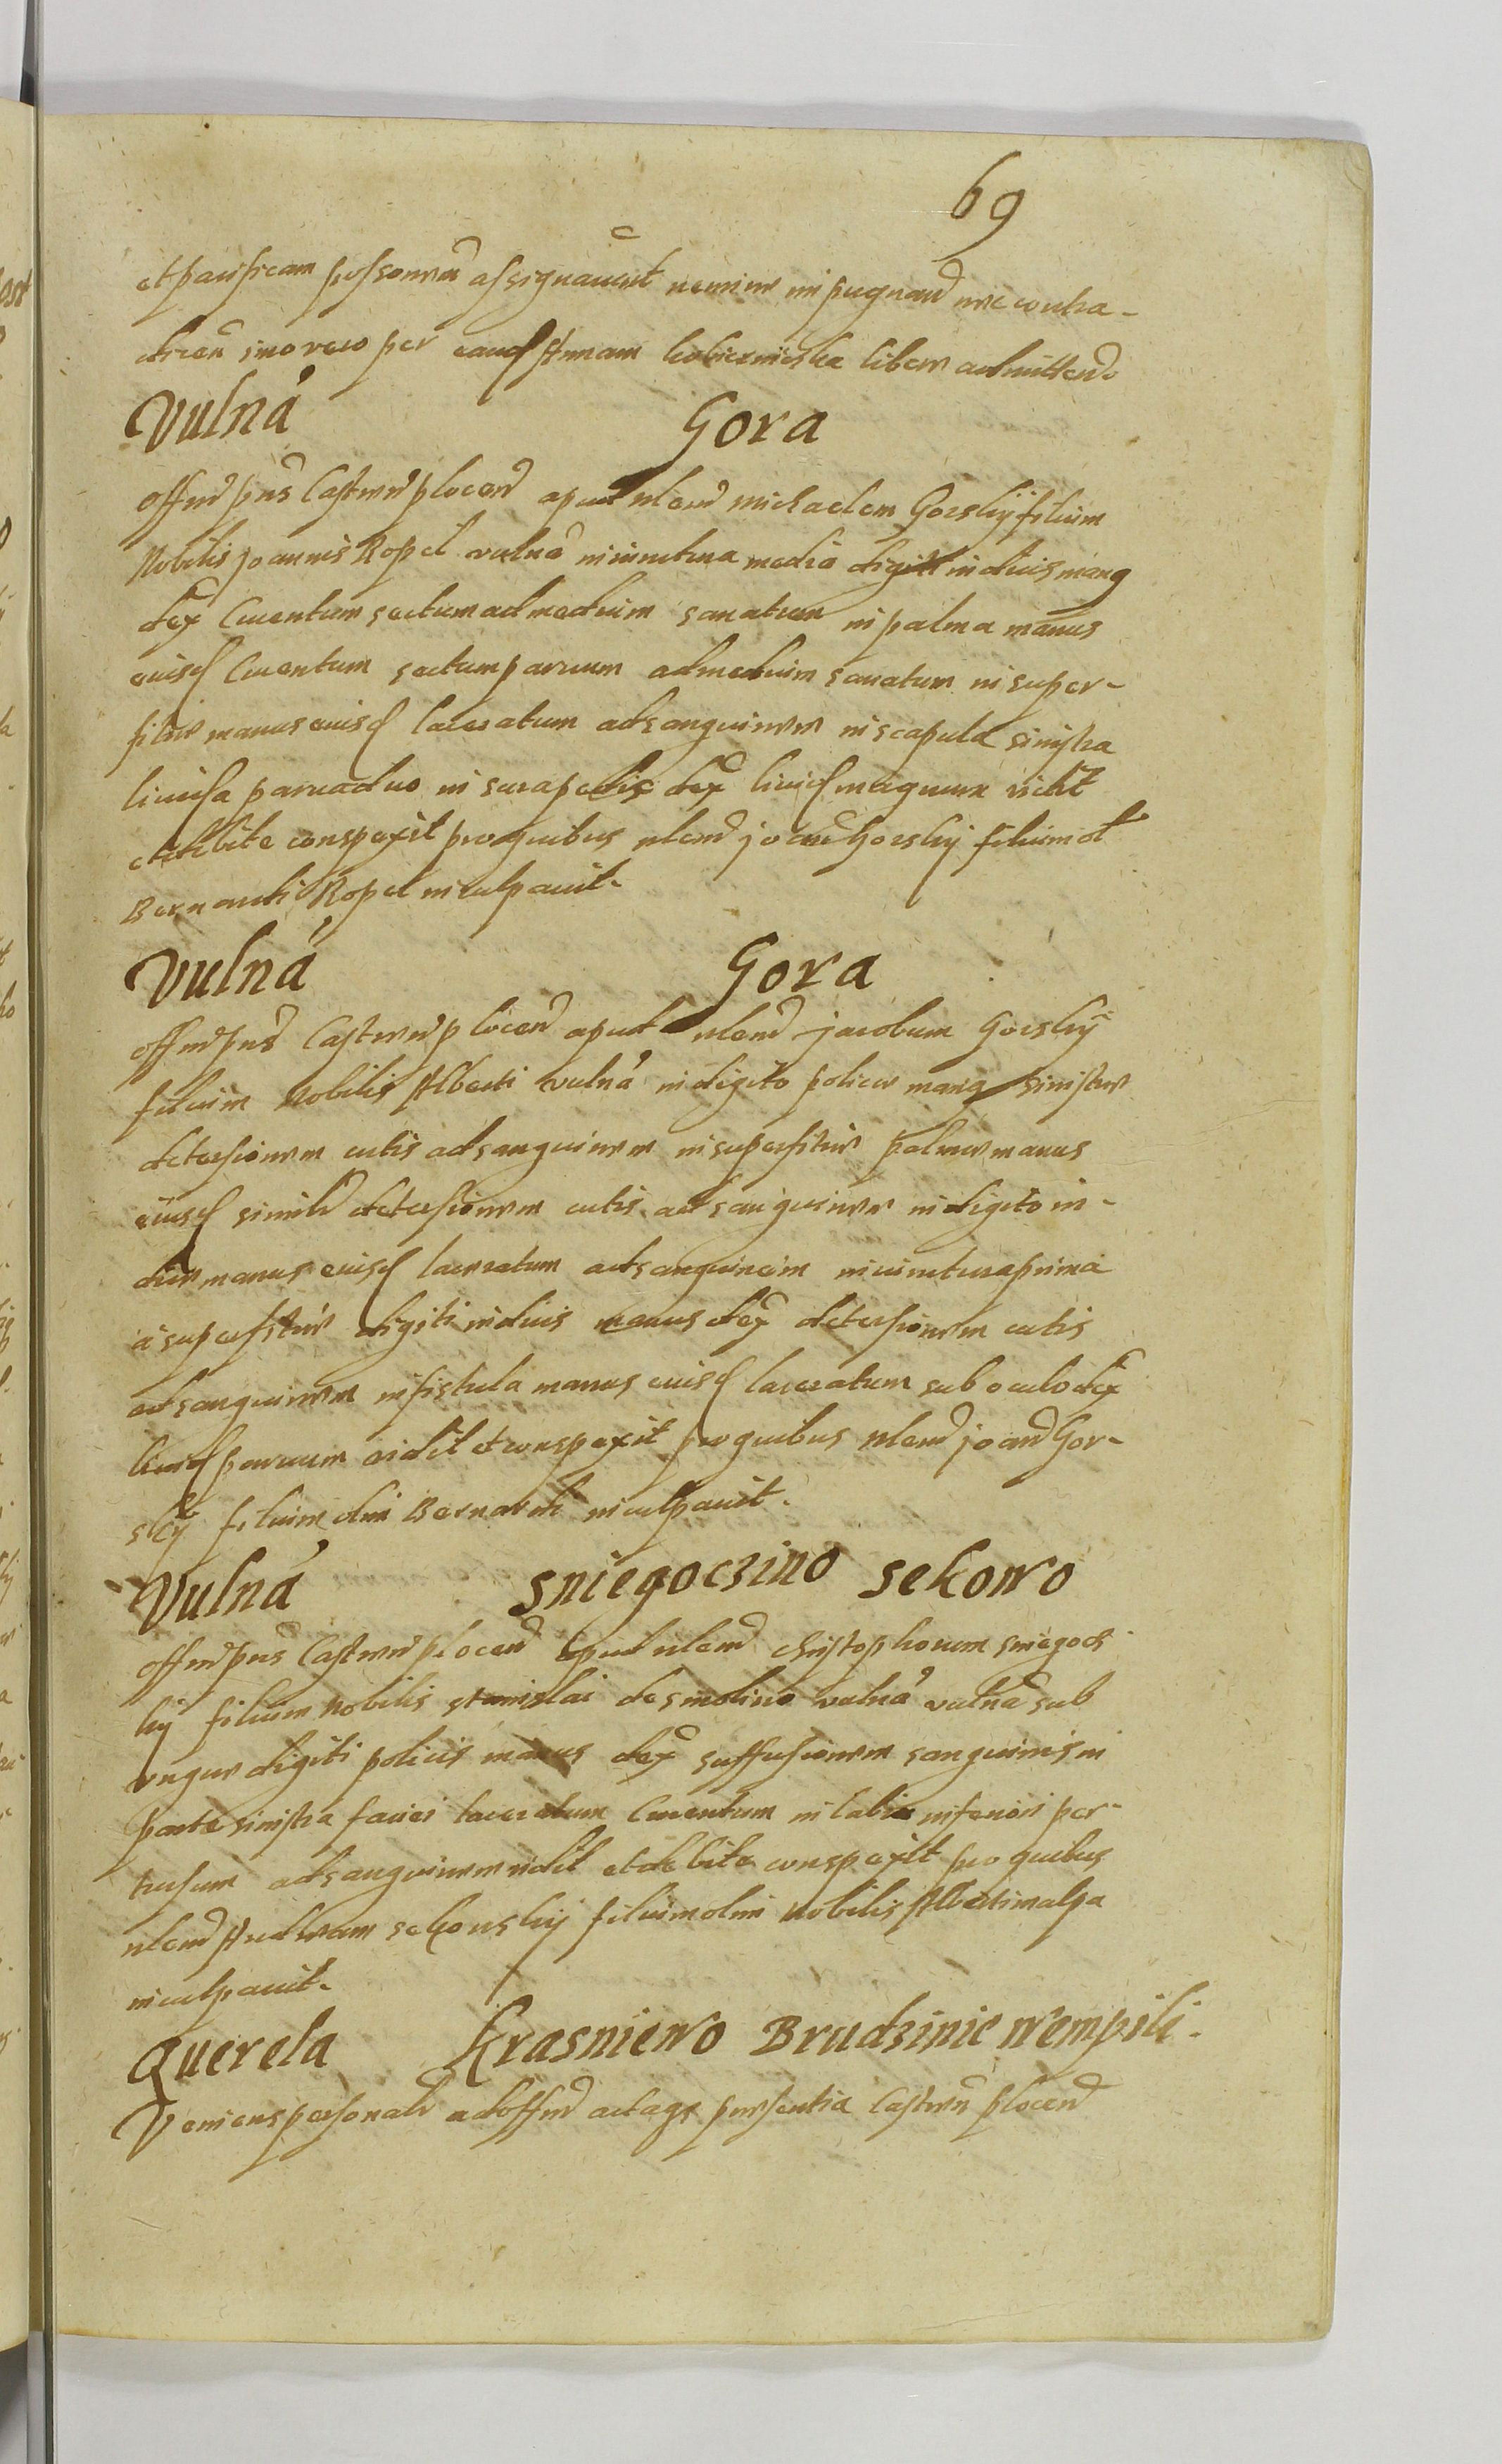 69
et pacificam possionem assignavit nemine impugnan nec contra-
dicen imo vero per eand Annam kobiernicska libere admitten.
Vulna Gora
Offm pns Castren plocen apud nlem Michaelem Gorskij filium
Nobilis Joannis Kopel vulna in iunctura media digiti indicis manq
dex Cruentum sectum ad medium sanatum in palma manus
eiusd Cruentum sectum parvum ad medium sanatum in super-
ficie manus eiusd laceratum ad sanguinem in scapula sinistra
livida parva duo in sura pedis dex livid magnum vidit
et debite conspexit pro quibus nlem Joan Gorskij filium ol
Bernardi Kopel inculpavit.
Vulna Gora
Offm pns Castren plocen apud nlem Jacobum Gorskij
filium Nobilis Alberti vulna in digito police manq sinistre
detersionem cutis ad sanguinem in superfitie palme manus
eiusd simile detersionem cutis ad sanguinem in digito in-
dice manus eiusd laceratum ad sanguinem in iunctura prima
a superfitie digiti indicis manus dex detersionem cutis
ad sanguinem in fistula manus eiusd laceratum sub oculo dex
livid parvum vidit et conspexit pro quibus nlem Joan Gor-
skij filium olim Bernardi inculpavit.
Vulna Sniegoczino Sekowo
Offm pns Castren plocen apud nlem Christophorum Sniegocs
kij filium Nobilis Stanislai de Smolino vulna vulna sub
ungue digiti policis manus dex suffusionem sanguinis in
parte sinistra faciei laceratum Cruentum in labio inferiori per-
tusum ad sanguinem vidit et debite conspexit pro quibus
nlem Andream Sekowskij filium olim Nobilis Alberti malga
inculpavit.
Querela Krasniewo Brudzinie Wempili.
Veniens personalr ad offm actaqz presentia Castren plocen